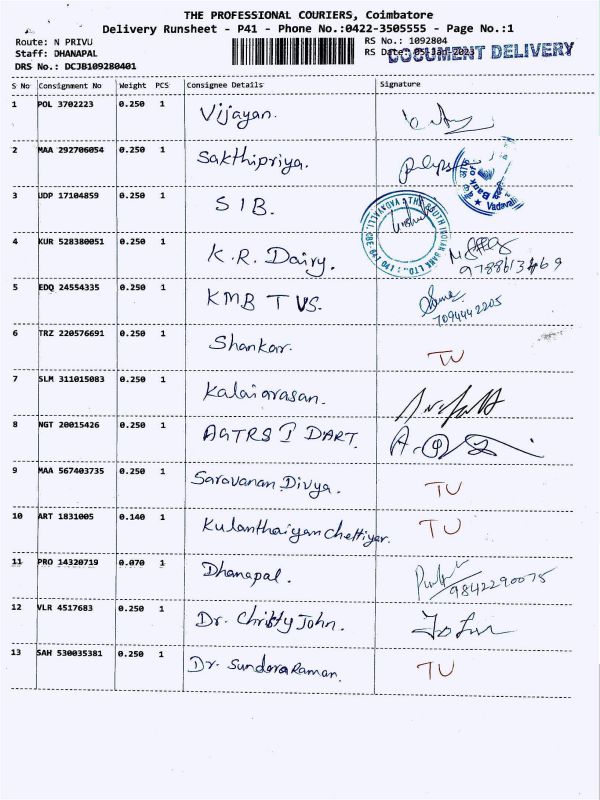 THE PROFESSIONAL COURIERS, Coimbatore
Delivery Runsheet - P41 - Phone No.:0422-3505555 - Page No.:1
Route: N PRIVU RS No.: 1092804
Staff: DHANAPAL RS Date: 05-Jan-2023 DOCUMENT DELIVERY
DRS No.: DCJB109280401
S No Consignment No Weight PCS Consignee Details Signature
1 POL 3702223 0.250 1 Vijayan.
2 MAA 292706054 0.250 1 Sakthipriya.
3 UDP 17104859 0.250 1 S I B.
4 KUR 528380051 0.250 1 K.R. Dairy.
5 EDQ 24554335 0.250 1 KMB T VS. 7094442205
6 TRZ 220576691 0.250 1 Shankar. TU
7 SLM 311015083 0.250 1 Kalaiarasan.
8 NGT 20015426 0.250 1 AGTRS I DART.
9 MAA 567403735 0.250 1 Saravanan Divya. TU
10 ART 1831005 0.140 1 Kulanthaiyan Chettiyar. TU
11 PRO 14320719 0.070 1 Dhanapal. 9842290075
12 VLR 4517683 0.250 1 Dr. Christy John.
13 SAH 530035381 0.250 1 Dr. Sundara Raman. TU